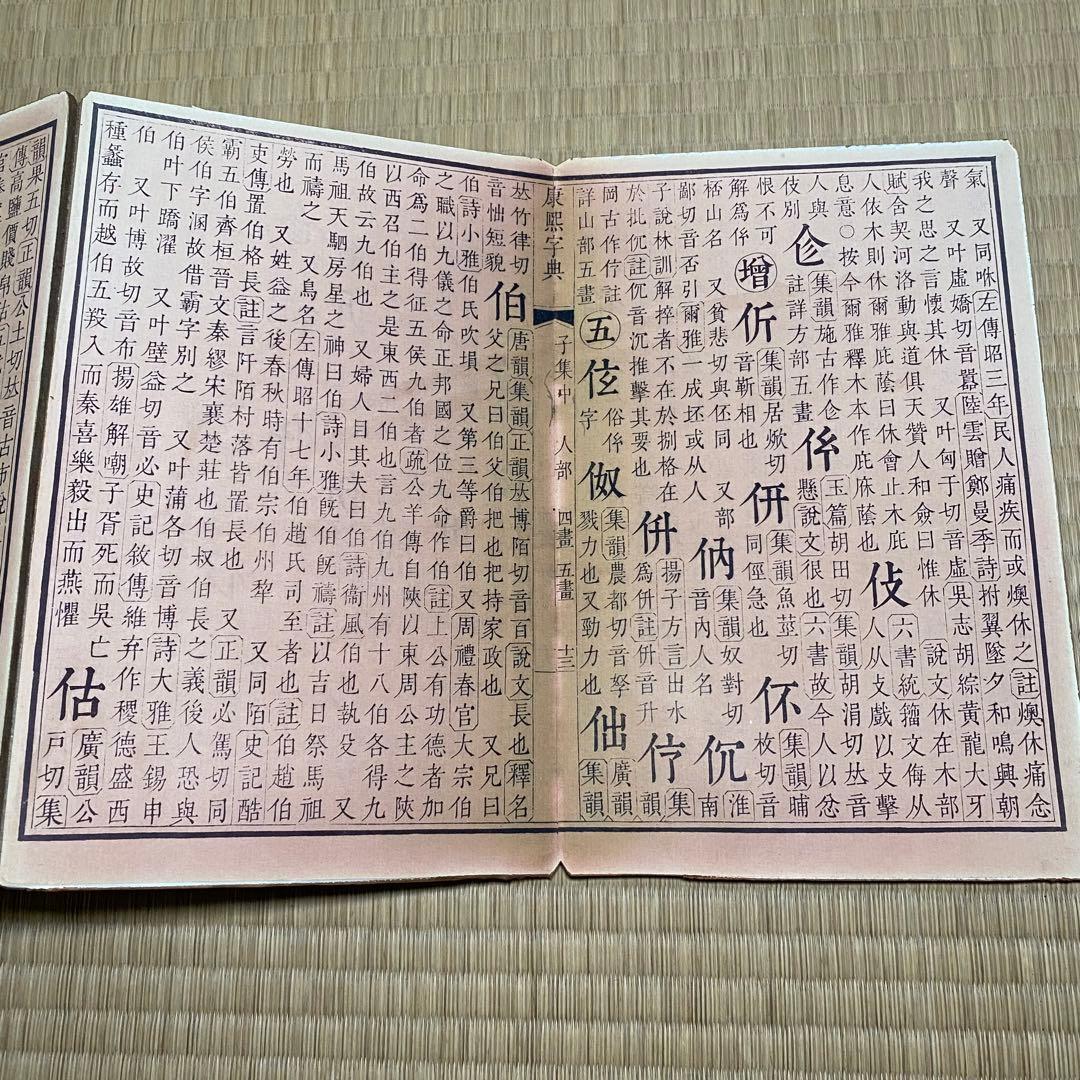 氣 又同咻左傳昭三年民人痛疾而或燠休之註燠休痛念
聲 又叶虛嬌切音囂陸雲贈鄭曼季詩拊翼墜夕和鳴興朝
我之思之言懷其休 又叶匈于切音虛吳志胡綜黃龍大牙
賦舍契河洛動與道俱天贊人和僉曰惟休 說文休在木部
人依木則休爾雅庇蔭曰休會止木庇 六書統籀文侮从
息意○按今爾雅釋木本作庇庥蔭也 人从攴戲以攴擊
人與 集韻施古作 玉篇胡田切集韻胡涓切𠀤音
伎別 註詳方部五畫 懸說文很也六書故今人以忿
恨不可 增 伒 集韻居焮切 集韻魚莖切 伓 集韻晡
解為 音靳相也 同俓急也 枚切音
柸山名 又貧悲切與伾同 又部 㐻 集韻奴對切 淮
鄙切音否引爾雅一成坯或从人 音內人名 南
子說林訓解捽者不在於捌格在 揚子方言出水 集
於批㧒註音沉推擊其要也 為併註併音升 韻
岡古作註 五 俗 㐐 集韻農都切音孥 㑁 廣韻
詳山部五畫 字 戮力也又勁力也 集韻
康熙字典 子集中 人部 四畫 五畫 十三
𠀤竹律切 伯 唐韻集韻正韻𠀤博陌切音百說文長也釋名
音怞短貌 父之兄曰伯父伯把也把持家政也 又兄曰
伯詩小雅伯氏吹壎 又第三等爵曰伯又周禮春官大宗伯
之職以九儀之命正邦國之位九命作伯註上公有功德者加
命為二伯得征五侯九伯者疏公羊傳自陝以東周公主之陝
以西召伯主之是東西二伯也言九伯九州有十八伯各得九
伯故云九伯也 又婦人目其夫曰伯詩衞風伯也執殳 又
馬祖天駟房星之神曰伯詩小雅旣伯旣禱註以吉日祭馬祖
而禱之 又鳥名左傳昭十七年伯趙氏司至者也註伯趙伯
勞也 又姓益之後春秋時有伯宗伯州犂 又同陌史記酷
吏傳置伯格長註言阡陌村落皆置長也 又正韻必駕切同
霸五伯齊桓晉文秦繆宋襄楚莊也伯叔伯長之義後人恐與
侯伯字溷故借霸字別之 又叶蒲各切音博詩大雅王錫申
伯叶下蹻濯 又叶壁益切音必史記敘傳維弃作稷德盛西
伯 又叶博故切音布揚雄解嘲子胥死而吳亡 估 廣韻公
種蠡存而越伯五羖入而秦喜樂毅出而燕懼 戸切集
韻果五切正韻公土切𠀤音古市稅